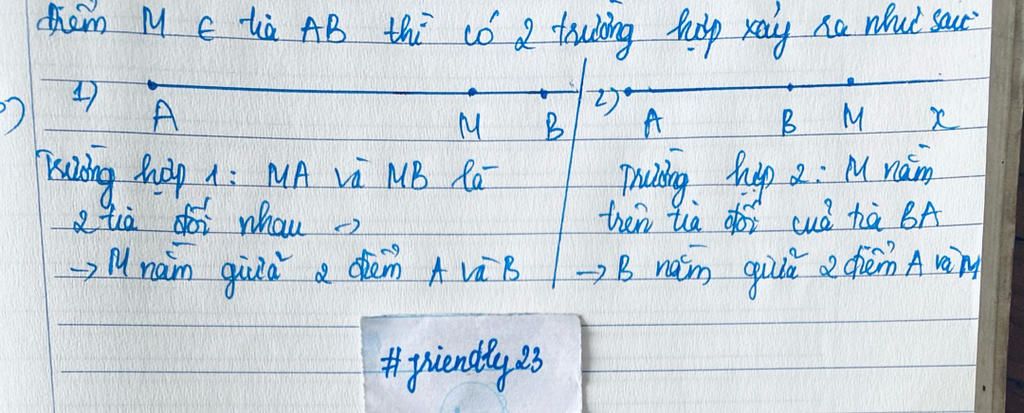 điểm M ∈ tia AB thì có 2 trường hợp xảy ra như sau
1)
A M B
2)
A B M x
Trường hợp 1: MA và MB là
2 tia đối nhau →
→ M nằm giữa 2 điểm A và B
Trường hợp 2: M nằm
trên tia đối cuả tia BA
→ B nằm giữa 2 điểm A và M
#friendly23